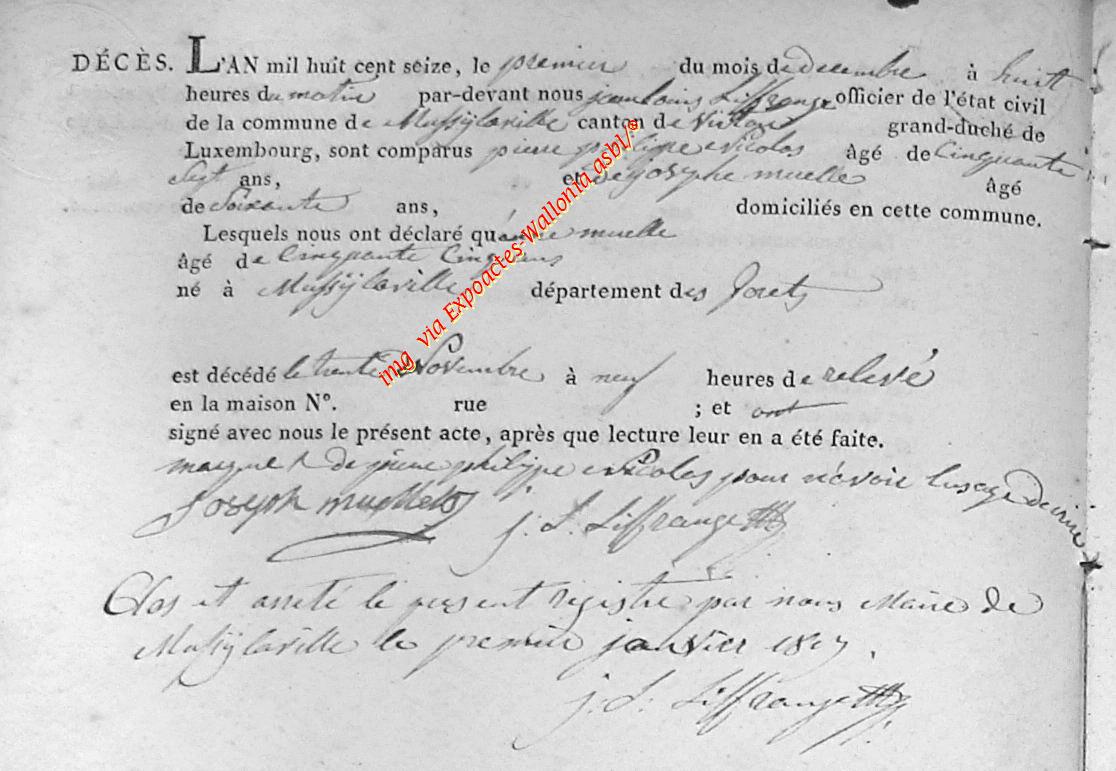 DÉCÈS. L'AN mil huit cent seize, le premier du mois de decembre à huit
heures du matin par-devant nous jean louis Liffrange officier de l'état civil
de la commune de Mussylaville canton de Virton grand-duché de
Luxembourg, sont comparus pierre philippe Nicolas âgé de Cinquante
Sept ans, et josephe muelle âgé
de Soixante ans, domiciliés en cette commune.
Lesquels nous ont déclaré qu' muelle
âgé de Cinquante Cinq ans
né à Mussylaville département des forets
est décédé le trente Novembre à neuf heures de relevé
en la maison N°. rue ; et ont
signé avec nous le présent acte, après que lecture leur en a été faite.
marque de pierre philippe Nicolas pour n'avoir lusage decrire
Joseph
j. L. Liffrange
Clos et arreté le present registre par nous Maire de
Mussylaville le premier janvier 1817.
j. L. Liffrange
img via Expoactes-Wallonia asbl/®